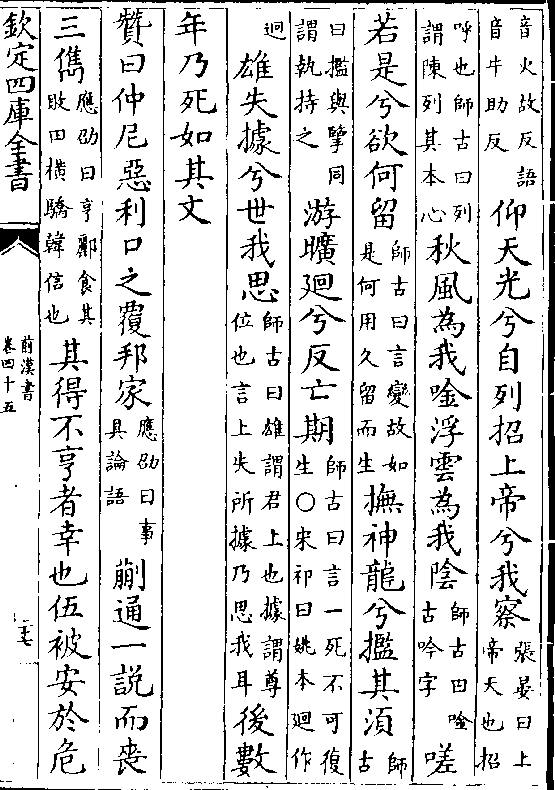 音火故反語
音牛助反
仰天光兮自列招上帝兮我察
張晏曰上
帝天也招
呼也師古曰列
謂陳列其本心
秋風為我唫浮雲為我陰
師古曰唫
古吟字
嗟
若是兮欲何留
師古曰言變故如
是何用久留而生
撫神龍兮㩜其湏
師
古
曰㩜與擥同
謂執持之
游曠廻兮反亡期
師古曰言一死不可復
生〇宋祁曰姚本廻作
迥
雄失據兮世我思
師古曰雄謂君上也據謂尊
位也言上失所據乃思我耳
後數
年乃死如其文
贊曰仲尼惡利口之覆邦家
應劭曰事
具論語
蒯通一說而喪
三儁
應劭曰亨酈食其
敗田橫驕韓信也
其得不亨者幸也伍被安於危
欽定四庫全書
前漢書
卷四十五
二十七